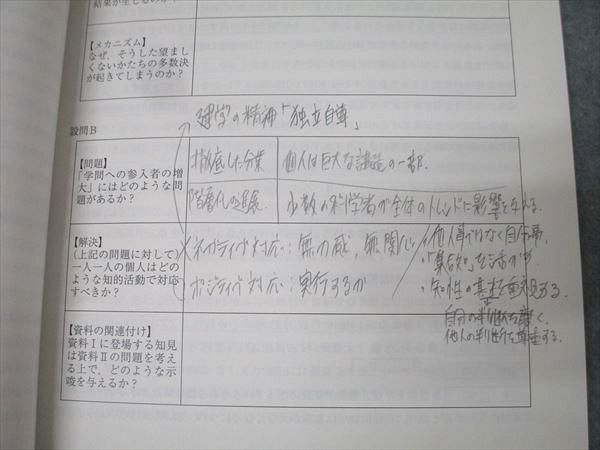 結果が生じるのか?
【メカニズム】
なぜ、そうした望まし
くないかたちの多数決
が起きてしまうのか?
建学の精神「独立自尊」
設問B
【問題】
「学問への参入者の増
大」にはどのような問
題があるか?
徹底した分業
個人は巨大な構造の一部.
階層化の進展.
少数の科学者が全体のトレンドに影響を与える.
【解決】
(上記の問題に対して)
一人一人の個人はどの
ような知的活動で対応
すべきか?
×ネガティブ対応:無力感,無関心
ポジティブ対応:実行するか
・他人事ではなく自分事,
「集合知」を活かす
・知性の基本を重視する.
自分の判断を磨く,
他人の判断を尊重する.
【資料の関連付け】
資料Ⅰに登場する知見
は資料Ⅱの問題を考え
る上で、どのような示
唆を与えるか?